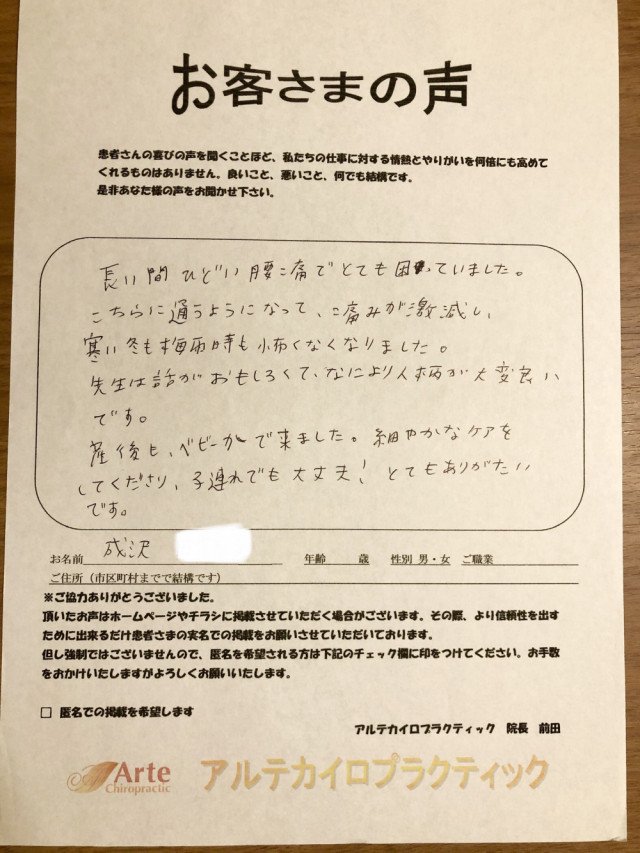 お客さまの声
患者さんの喜びの声を聞くことほど、私たちの仕事に対する情熱とやりがいを何倍にも高めて
くれるものはありません。良いこと、悪いこと、何でも結構です。
是非あなた様の声をお聞かせ下さい。
長い間 ひどい腰痛でとても困っていました。
こちらに通うようになって、痛みが激減し、
寒い冬も梅雨時も怖くなくなりました。
先生は話がおもしろくて、なにより人柄が大変良い
です。
産後も、ベビーカーで来ました。細やかなケアを
してくださり、子連れでも大丈夫！とてもありがたい
です。
お名前 成沢 年齢 歳 性別 男・女 ご職業
ご住所（市区町村までで結構です）
※ご協力ありがとうございました。
頂いたお声はホームページやチラシに掲載させていただく場合がございます。その際、より信頼性を出す
ために出来るだけ患者さまの実名での掲載をお願いさせていただいております。
但し強制ではございませんので、匿名を希望される方は下記のチェック欄に印をつけてください。お手数
をおかけいたしますがよろしくお願いいたします。
□ 匿名での掲載を希望します
アルテカイロプラクティック 院長 前田
Arte
Chiropractic
アルテカイロプラクティック